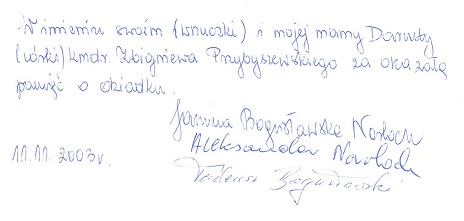 W imieniu swoim (wnuczki) i mojej mamy Danuty
(córki) kmdr. Zbigniewa Przybyszewskiego za okazałą
pamięć o dziadku.
Janina Bogusławska
Aleksandra
11.11.2003r.
Tadeusz Bogusławski